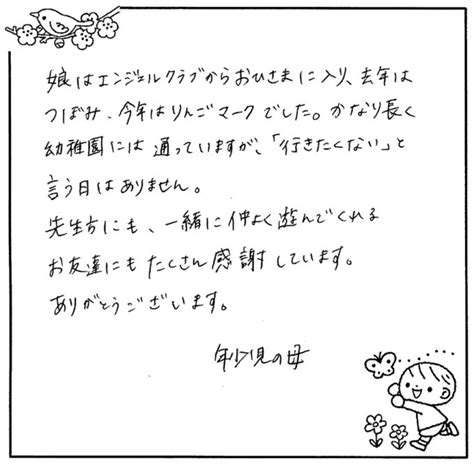 娘はエンジェルクラブからおひさまに入り、去年は
つぼみ、今年はりんごマークでした。かなり長く
幼稚園には通っていますが、「行きたくない」と
言う日はありません。
先生方にも、一緒に仲よく遊んでくれる
お友達にもたくさん感謝しています。
ありがとうございます。
年少児の母